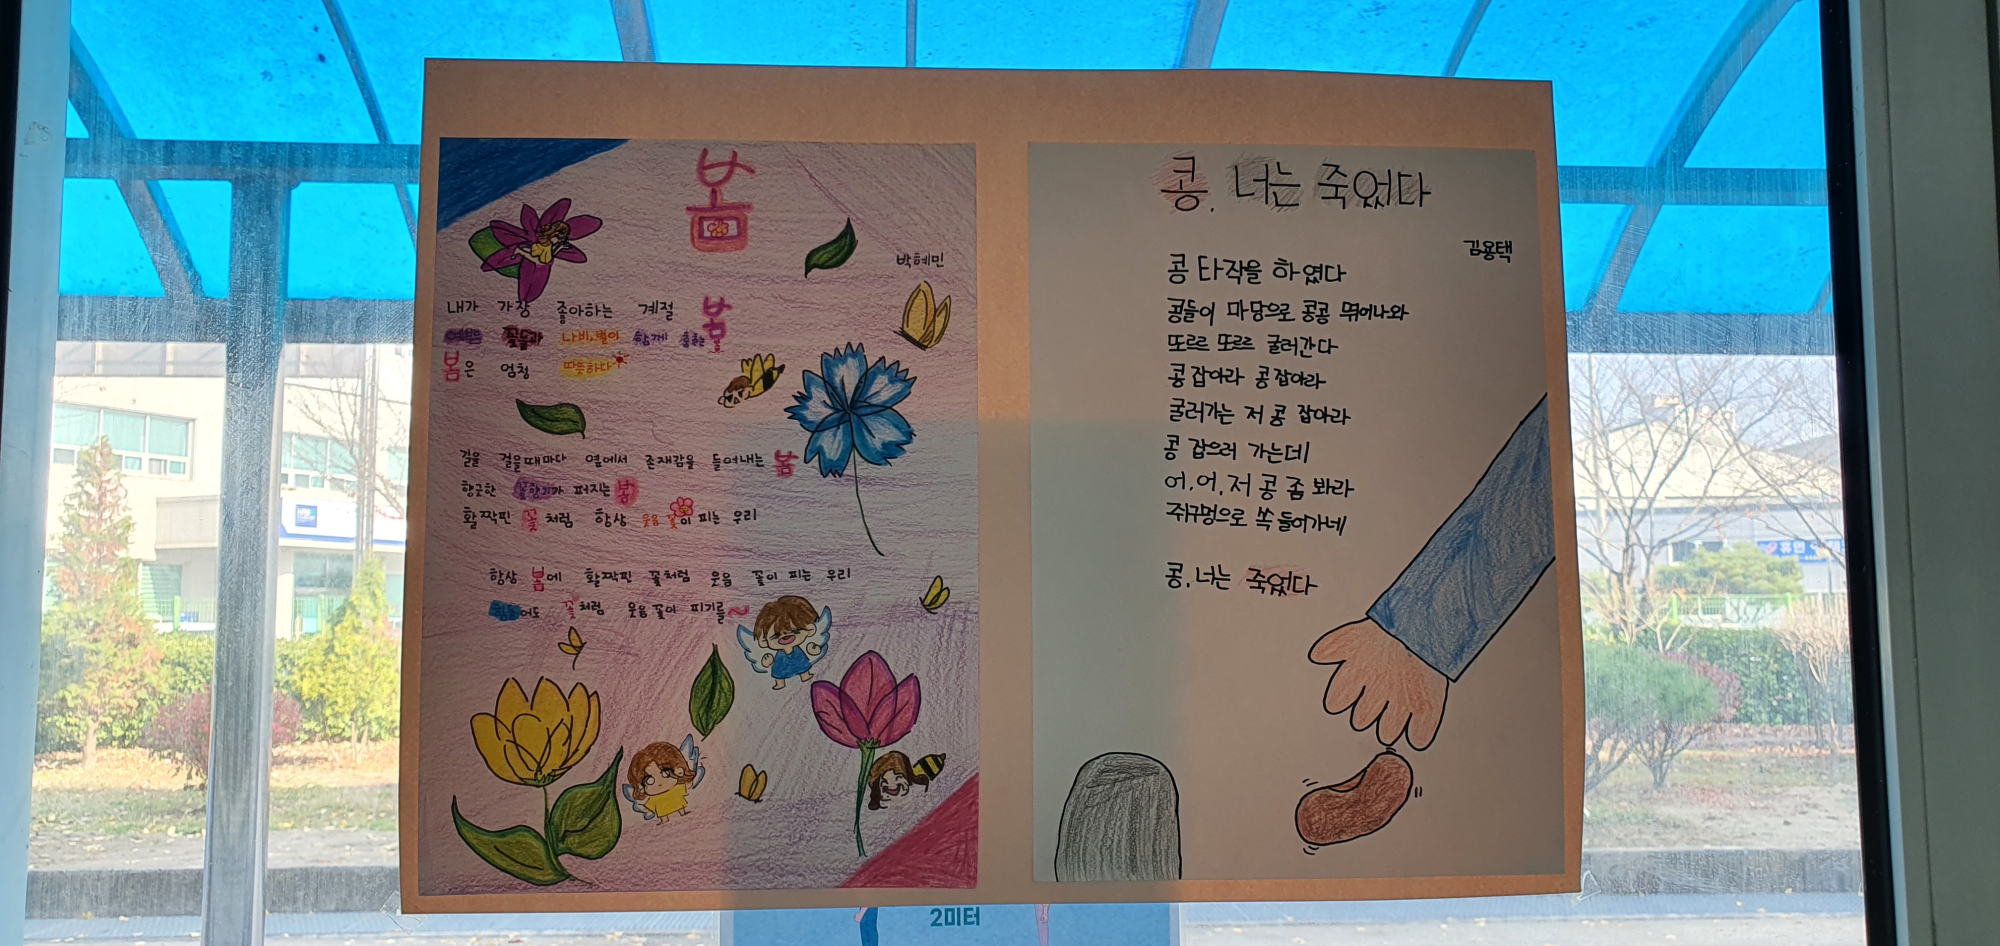 봄
박혜민
내가 가장 좋아하는 계절 봄
예쁜 꽃들과 나비, 벌이 함께 춤추는 봄
봄은 엄청 따뜻하다
길을 걸을때마다 옆에서 존재감을 들어내는 봄
향긋한 꽃향기가 퍼지는 봄
활짝핀 꽃처럼 항상 웃음 꽃이 피는 우리
항상 봄에 활짝핀 꽃처럼 웃음 꽃이 피는 우리
힘들어도 꽃처럼 웃음꽃이 피기를~
콩, 너는 죽었다
김용택
콩타작을 하였다
콩들이 마당으로 콩콩 뛰어나와
또르르 또르르 굴러간다
콩잡아라 콩잡아라
굴러가는 저 콩 잡아라
콩 잡으러 가는데
어, 어, 저 콩 좀 봐라
쥐구멍으로 쏙 들어가네
콩, 너는 죽었다
2미터